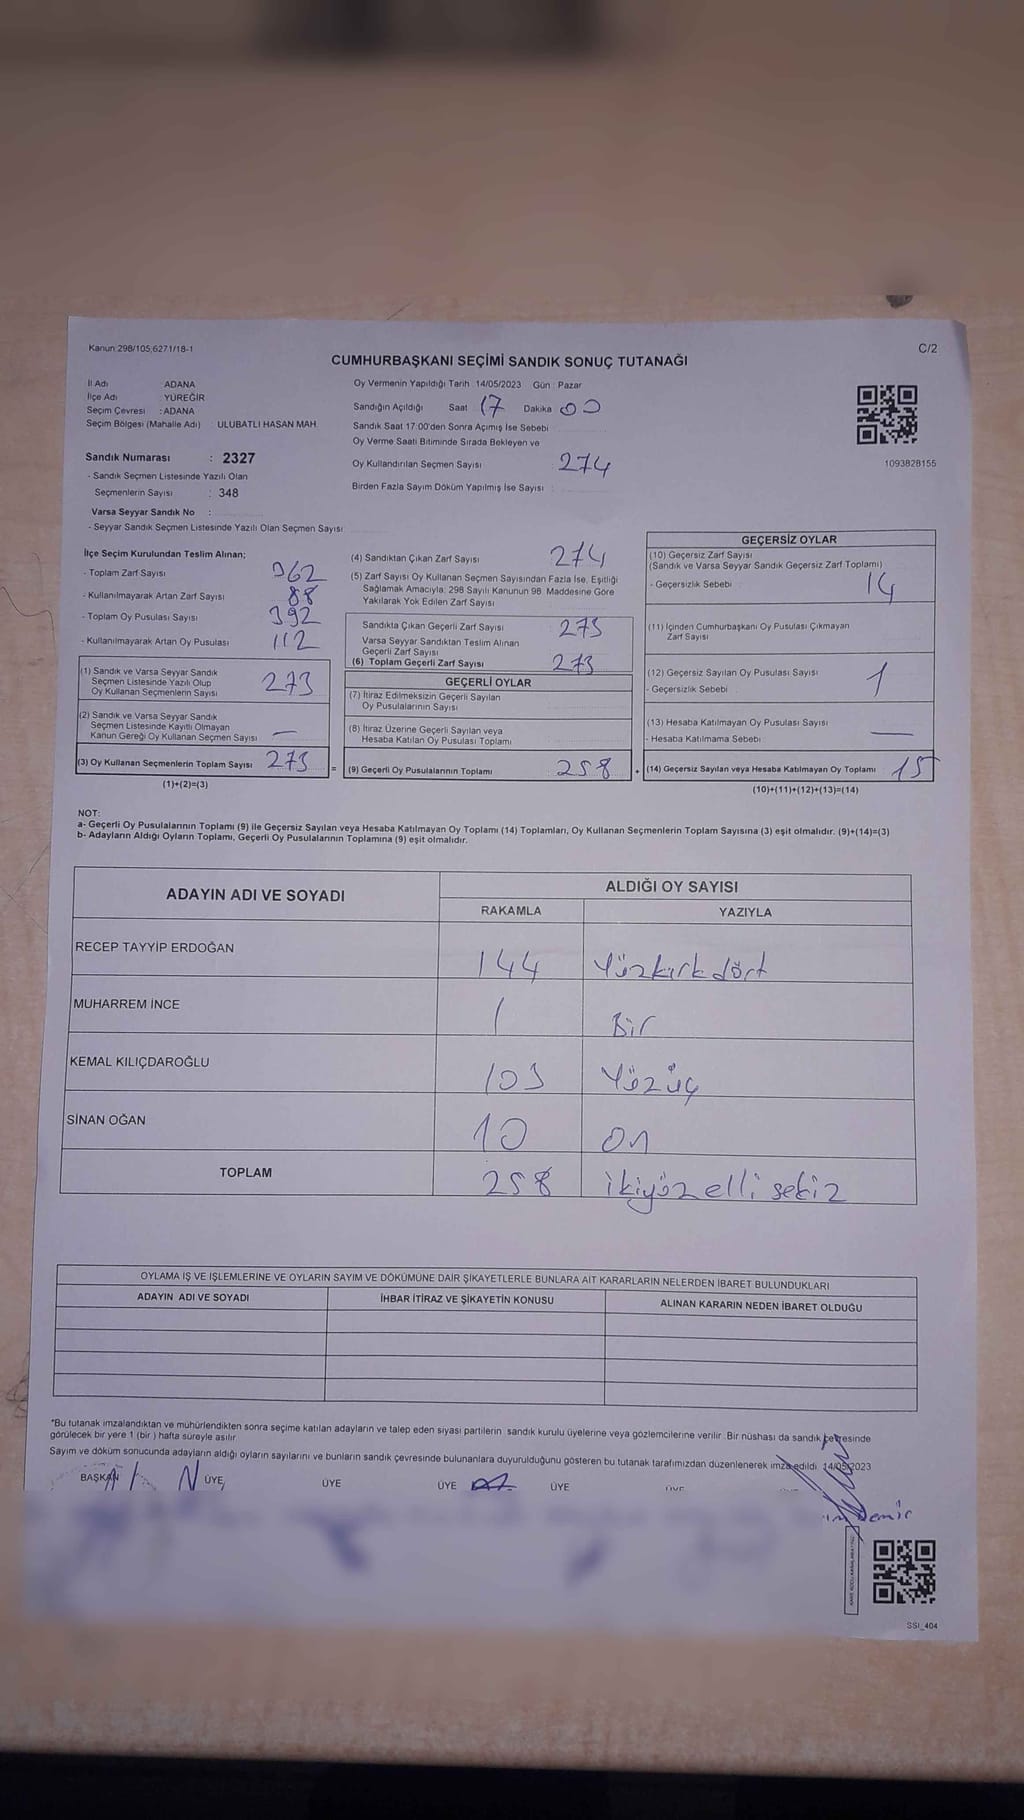 Kanun:298/105;6271/18-1
C/2
CUMHURBAŞKANI SEÇİMİ SANDIK SONUÇ TUTANAĞI
İl Adı ADANA
İlçe Adı : YÜREĞİR
Seçim Çevresi : ADANA
Seçim Bölgesi (Mahalle Adı) : ULUBATLI HASAN MAH.
Sandık Numarası : 2327
- Sandık Seçmen Listesinde Yazılı Olan
Seçmenlerin Sayısı : 348
Varsa Seyyar Sandık No :
- Seyyar Sandık Seçmen Listesinde Yazılı Olan Seçmen Sayısı:
Oy Vermenin Yapıldığı Tarih : 14/05/2023 Gün : Pazar
Sandığın Açıldığı Saat 17 Dakika 00
Sandık Saat 17:00'den Sonra Açımış İse Sebebi
Oy Verme Saati Bitiminde Sırada Bekleyen ve
Oy Kullandırılan Seçmen Sayısı 274
Birden Fazla Sayım Döküm Yapılmış İse Sayısı :
1093828155
İlçe Seçim Kurulundan Teslim Alınan;
- Toplam Zarf Sayısı 362
- Kullanılmayarak Artan Zarf Sayısı 88
- Toplam Oy Pusulası Sayısı 392
- Kullanılmayarak Artan Oy Pusulası 112
(1) Sandık ve Varsa Seyyar Sandık
Seçmen Listesinde Yazılı Olup
Oy Kullanan Seçmenlerin Sayısı 273
(2) Sandık ve Varsa Seyyar Sandık
Seçmen Listesinde Kayıtlı Olmayan
Kanun Gereği Oy Kullanan Seçmen Sayısı —
(3) Oy Kullanan Seçmenlerin Toplam Sayısı 273
(1)+(2)=(3)
(4) Sandıktan Çıkan Zarf Sayısı 274
(5) Zarf Sayısı Oy Kullanan Seçmen Sayısından Fazla İse, Eşitliği
Sağlamak Amacıyla; 298 Sayılı Kanunun 98. Maddesine Göre
Yakılarak Yok Edilen Zarf Sayısı
Sandıkta Çıkan Geçerli Zarf Sayısı 273
Varsa Seyyar Sandıktan Teslim Alınan
Geçerli Zarf Sayısı
(6) Toplam Geçerli Zarf Sayısı 273
GEÇERLİ OYLAR
(7) İtiraz Edilmeksizin Geçerli Sayılan
Oy Pusulalarının Sayısı
(8) İtiraz Üzerine Geçerli Sayılan veya
Hesaba Katılan Oy Pusulası Toplamı
= (9) Geçerli Oy Pusulalarının Toplamı 258 +
GEÇERSİZ OYLAR
(10) Geçersiz Zarf Sayısı
(Sandık ve Varsa Seyyar Sandık Geçersiz Zarf Toplamı)
- Geçersizlik Sebebi 14
(11) İçinden Cumhurbaşkanı Oy Pusulası Çıkmayan
Zarf Sayısı
(12) Geçersiz Sayılan Oy Pusulası Sayısı
- Geçersizlik Sebebi 1
(13) Hesaba Katılmayan Oy Pusulası Sayısı
- Hesaba Katılmama Sebebi: —
(14) Geçersiz Sayılan veya Hesaba Katılmayan Oy Toplamı 15
(10)+(11)+(12)+(13)=(14)
NOT:
a- Geçerli Oy Pusulalarının Toplamı (9) ile Geçersiz Sayılan veya Hesaba Katılmayan Oy Toplamı (14) Toplamları, Oy Kullanan Seçmenlerin Toplam Sayısına (3) eşit olmalıdır. (9)+(14)=(3)
b- Adayların Aldığı Oyların Toplamı, Geçerli Oy Pusulalarının Toplamına (9) eşit olmalıdır.
ADAYIN ADI VE SOYADI
ALDIĞI OY SAYISI
RAKAMLA YAZIYLA
RECEP TAYYİP ERDOĞAN 144 Yüzkırkdört
MUHARREM İNCE 1 Bir
KEMAL KILIÇDAROĞLU 103 Yüzüç
SİNAN OĞAN 10 On
TOPLAM 258 ikiyüzellisekiz
OYLAMA İŞ VE İŞLEMLERİNE VE OYLARIN SAYIM VE DÖKÜMÜNE DAİR ŞİKAYETLERLE BUNLARA AİT KARARLARIN NELERDEN İBARET BULUNDUKLARI
ADAYIN ADI VE SOYADI İHBAR İTİRAZ VE ŞİKAYETİN KONUSU ALINAN KARARIN NEDEN İBARET OLDUĞU
*Bu tutanak imzalandıktan ve mühürlendikten sonra seçime katılan adayların ve talep eden siyasi partilerin sandık kurulu üyelerine veya gözlemcilerine verilir. Bir nüshası da sandık çevresinde
görülecek bir yere 1 (bir) hafta süreyle asılır.
Sayım ve döküm sonucunda adayların aldığı oyların sayılarını ve bunların sandık çevresinde bulunanlara duyurulduğunu gösteren bu tutanak tarafımızdan düzenlenerek imza edildi. 14/05/2023
BAŞKAN ÜYE ÜYE ÜYE ÜYE
Demir
SSI_404